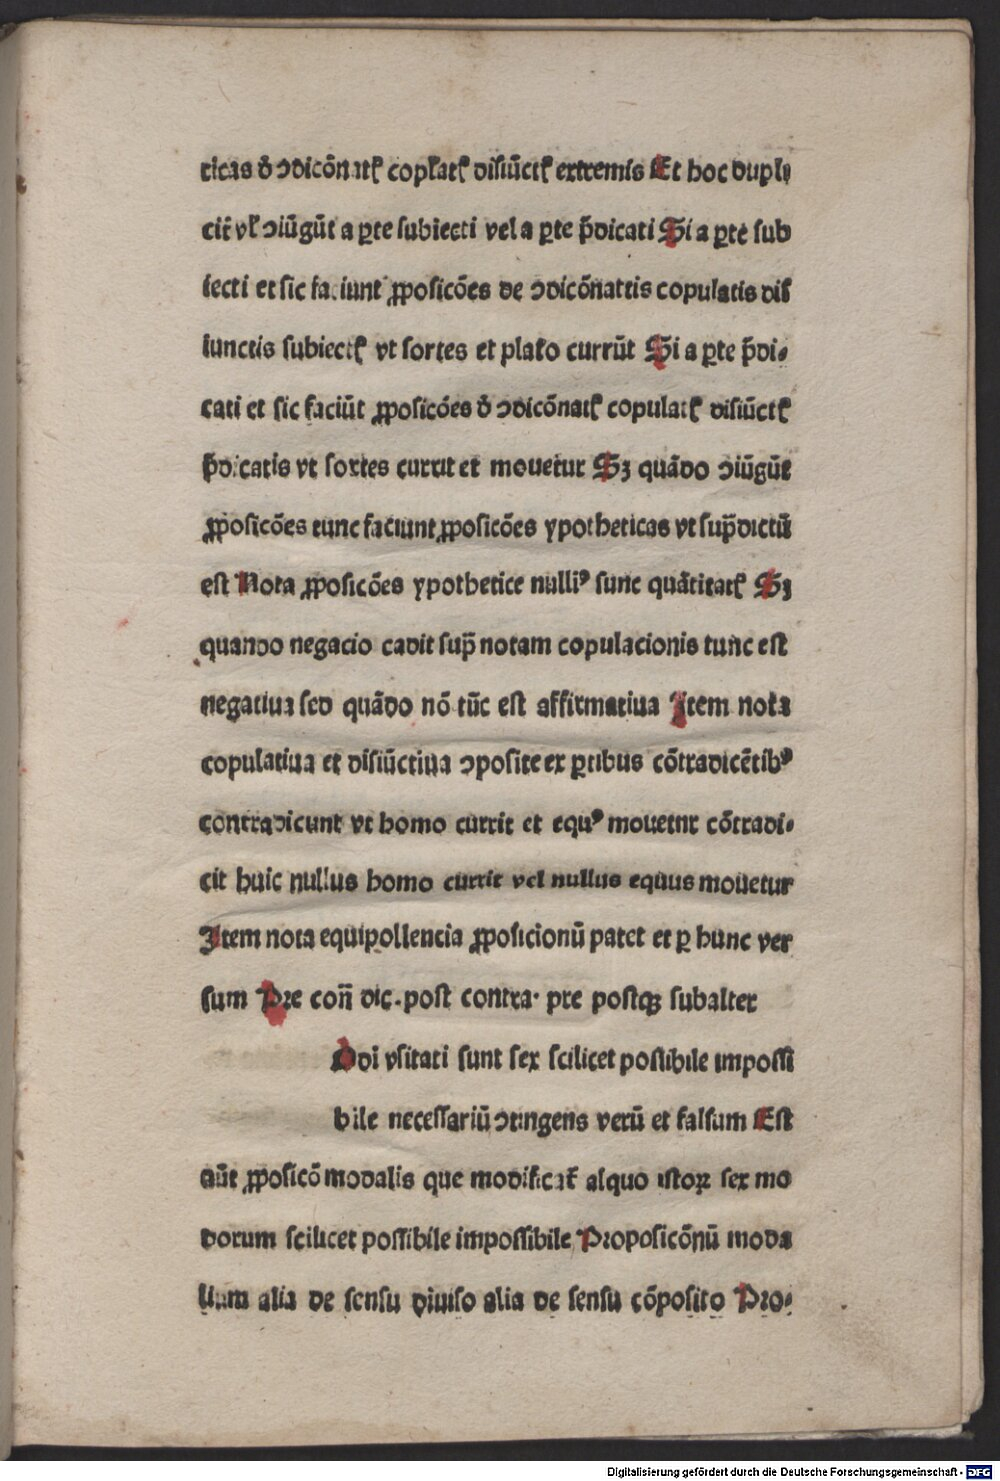 ricas ð ↄdicōnatꝭ copl̕atꝭ disiūctꝭ extremis Et hoc dupli
cit̕ vl̕ ↄiūgūt a ꝑte subiecti vel a ꝑte p̄dicati Si a ꝑte sub
iecti et sic faciunt ꝓposicōes de ↄdicōnattis copulatis dis
iunctis subiectꝭ vt sortes et plato currūt Si a ꝑte p̄di⸗
cati et sic faciūt ꝓposicōes ð ↄdicōnatꝭ copulatꝭ disiūctꝭ
p̄dicatis vt sortes currit et mouetur Sꝫ quādo ↄiūgūt
ꝓposicōes tunc faciunt ꝓposicōes ypotheticas vt sup̄dictū
est Nota ꝓposicōes ypothetice nulliꝰ sunc quātitatꝭ Sꝫ
quando negacio cadit sup̄ notam copulacionis tunc est
negatiua sed quādo nō tūc est affirmatiua Item nota
copulatiua et disiūctiua ↄposite ex ꝑtibus cōtradicētibꝰ
contradicunt vt homo currit et equꝰ mouetur cōtradi⸗
cit huic nullus homo currit vel nullus equus mouetur
Item nota equipollencia ꝓposicionū patet et ꝑ hunc ver
sum Pre con̄ dic. post contra· pre postqꝫ subalter
Odi vsitati sunt sex scilicet possibile impossi
bile necessariū ↄtingens verū et falsum Est
aūt ꝓposicō modalis que modificat̕ alquo istoꝝ sex mo
dorum scilicet possibile impossibile Proposicōnū moda
lium alia de sensu diuiso alia de sensu cōposito Pro⸗
Digitalisierung gefördert durch die Deutsche Forschungsgemeinschaft - DFG